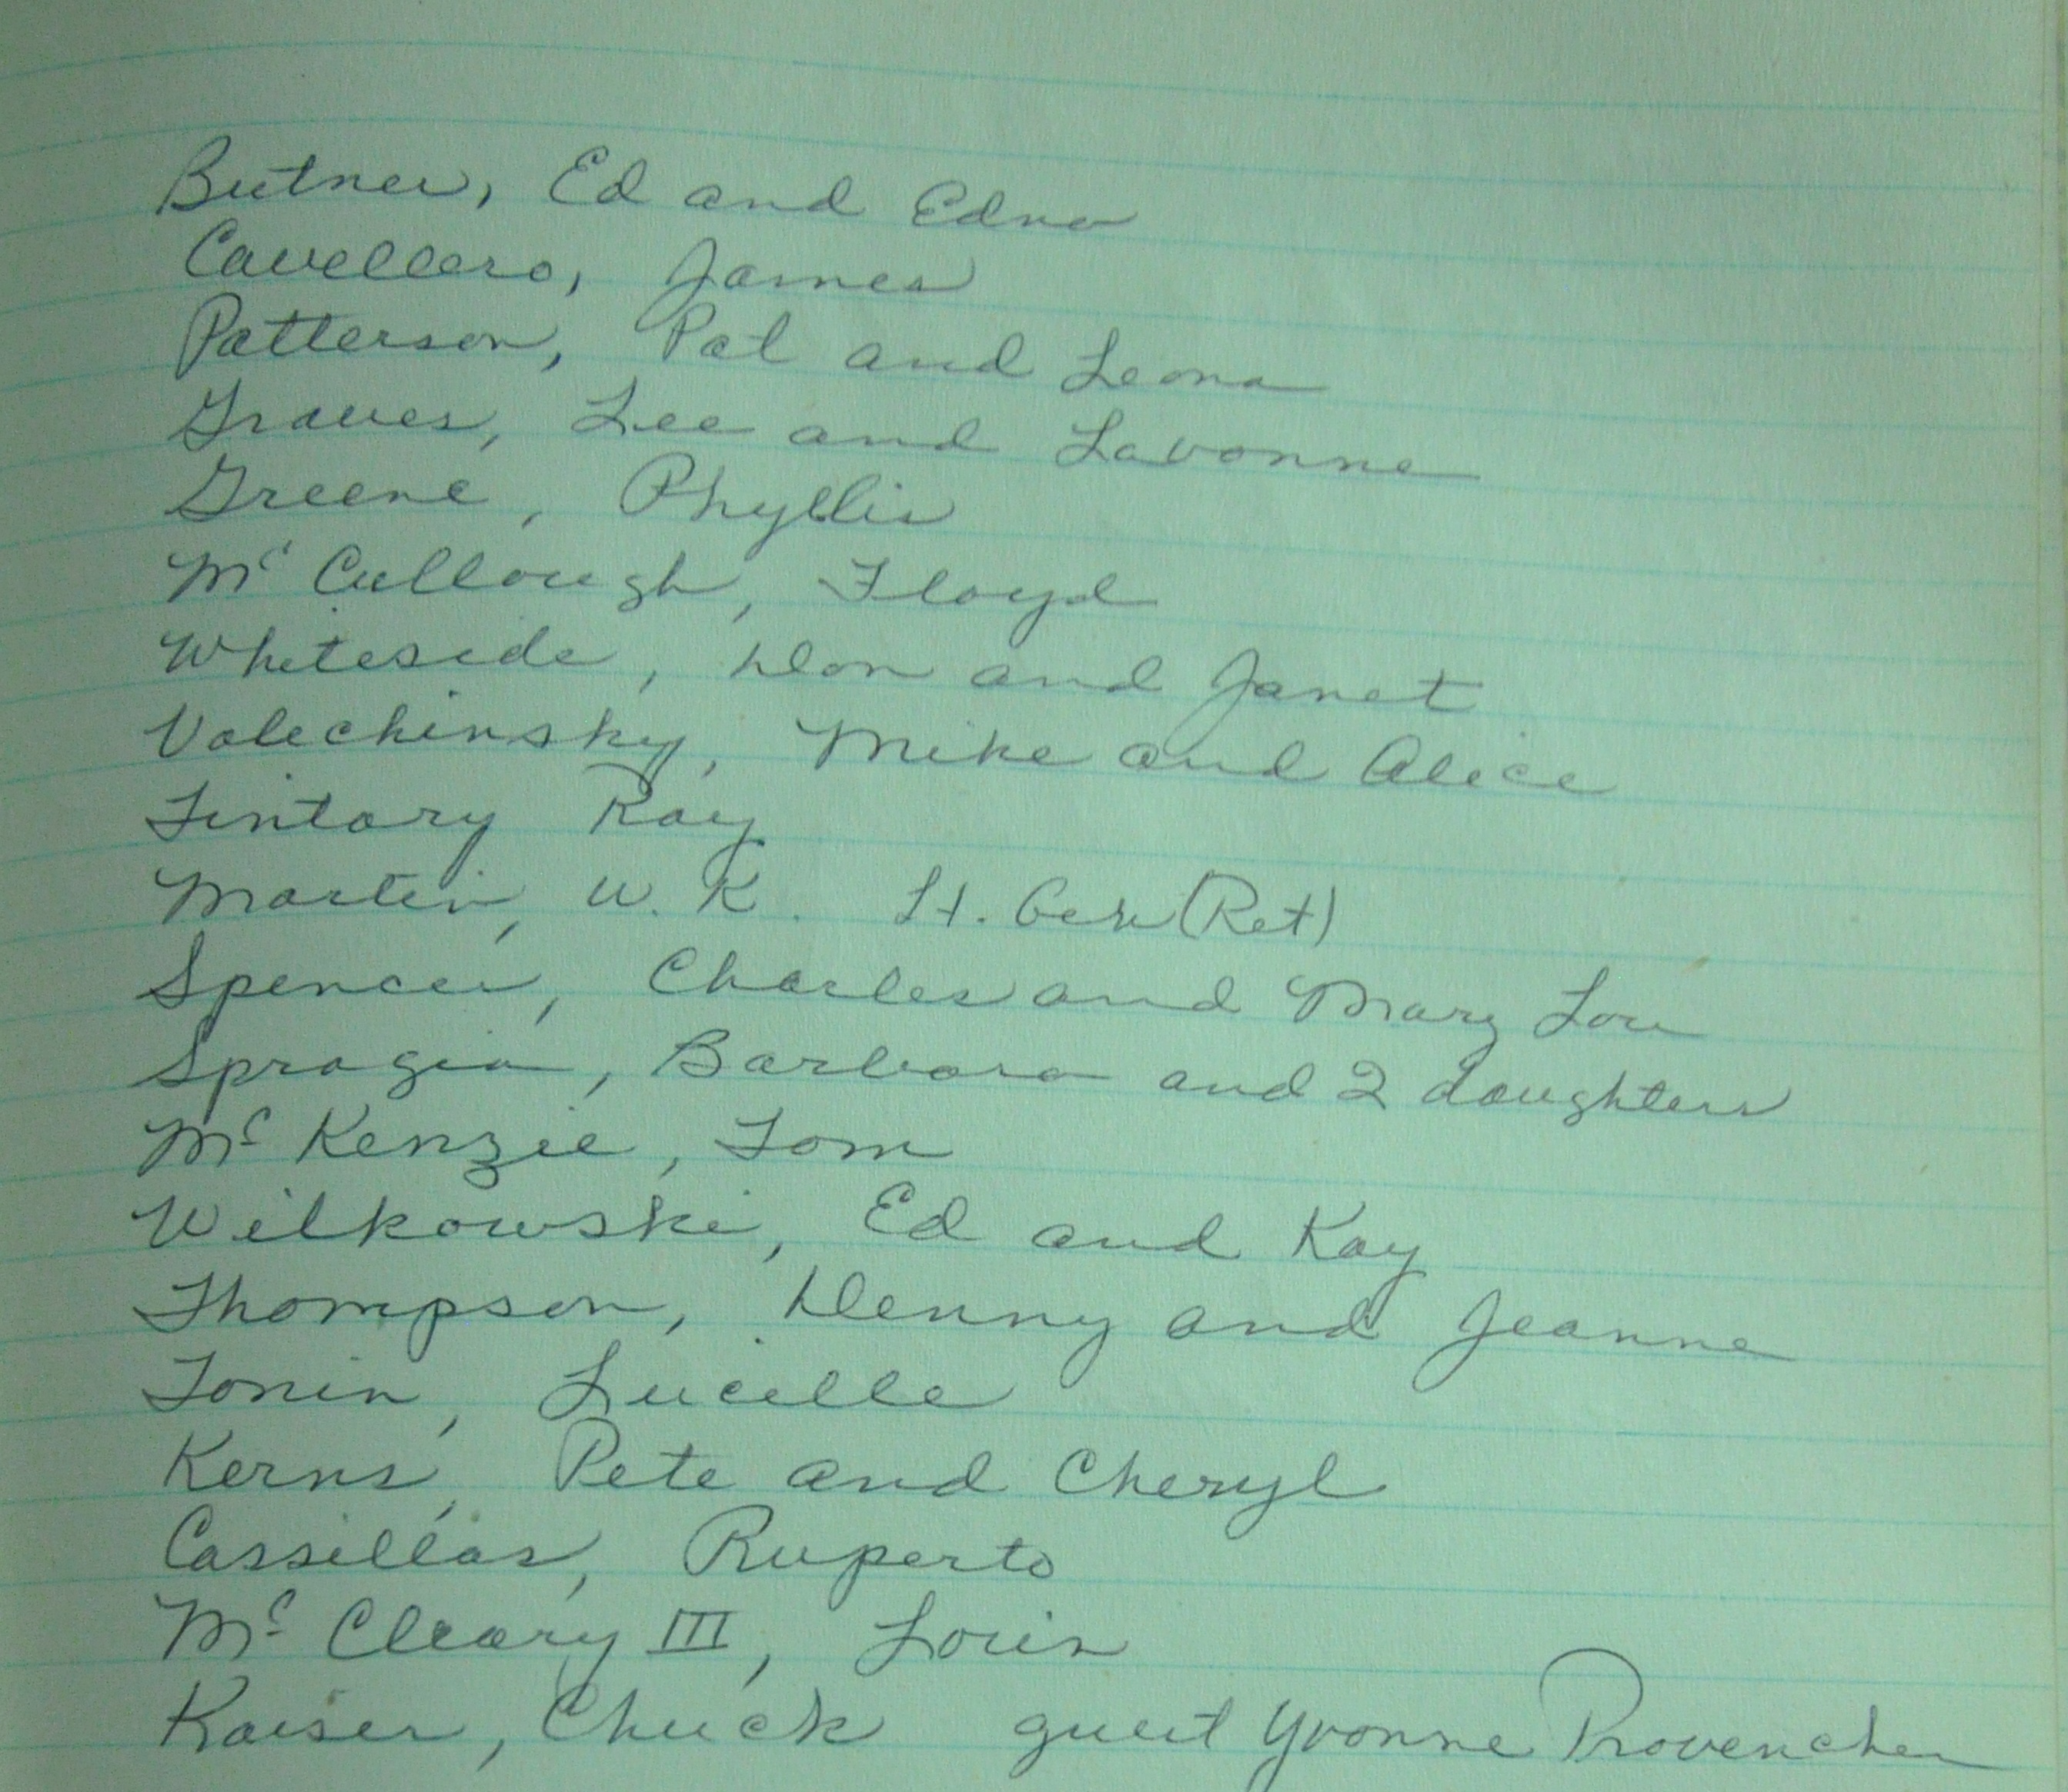 Butner, Ed and Edna
Cavellero, James
Patterson, Pat and Leona
Graves, Lee and Lavonne
Greene, Phyllis
Mc Cullough, Floyd
Whiteside, Don and Janet
Valechinsky, Mike and Alice
Tintary Ray
Martin, W. K. Lt. Gen (Ret)
Spencer, Charles and Mary Lou
Spragia, Barbara and 2 daughters
Mc Kenzie, Tom
Wilkowski, Ed and Kay
Thompson, Denny and Jeanne
Tonin, Lucille
Kerns, Pete and Cheryl
Cassillas, Ruperto
Mc Cleary III, Louis
Kaiser, Chuck guest Yvonne Provencher